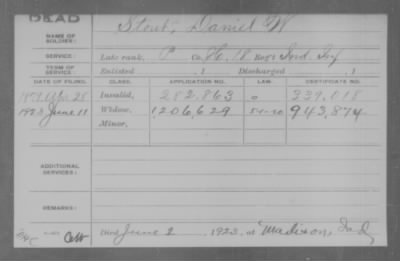 DEAD
NAME OF SOLDIER: Stout, Daniel W
SERVICE: Late rank, P Co. H, 18 Reg't Ind. Inf
TERM OF SERVICE: Enlisted , 1 Discharged , 1
DATE OF FILING. CLASS. APPLICATION NO. LAW. CERTIFICATE NO.
1879 Apr 28 Invalid, 282.863 339.018
1923 June 11 Widow, 1,206,629 943,874
Minor,
ADDITIONAL SERVICES:
REMARKS:
Died June 2 1923, at Madison, Ind